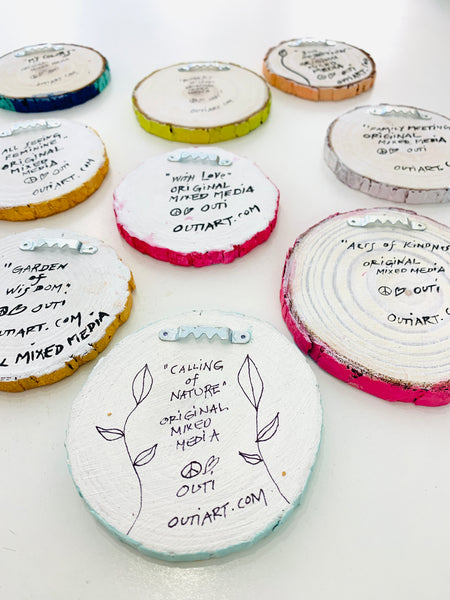 "MY
OUTIART.COM
ORIGINAL
MIXED
MEDIA
OUTI
OUTIART.COM
ALL SEEING
FEMININE"
ORIGINAL
MIXED
MEDIA
OUTI
OUTIART.COM
"WITH LOVE"
ORIGINAL
MIXED MEDIA
OUTI
OUTIART.COM
"FAMILY MEETING
ORIGINAL
MIXED MEDIA
OUTI
OUTIART.COM
"GARDEN
OF
WISDOM"
OUTI
OUTIART.COM
MIXED MEDIA
"ACTS OF KINDNESS
ORIGINAL
MIXED MEDIA
OUTI
OUTIART.C
"CALLING
OF
NATURE"
ORIGINAL
MIXED
MEDIA
OUTI
OUTIART.COM